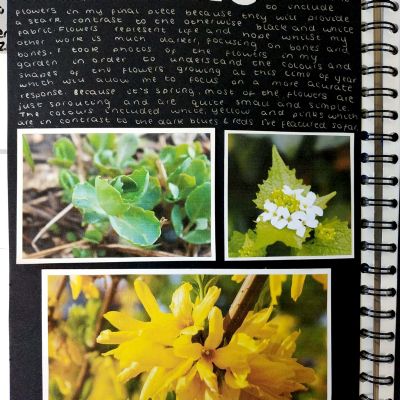 flowers in my final piece because they will provide
to include
a stark contrast to the otherwise black and white
fabric. Flowers represent life and hope whilst my
other work is much darker, focusing on bones and
bones. I took photos of the flowers in my
garden in order to understand the colours and
shapes of the flowers growing at this time of year
which will allow me to focus on a more accurate
response. Because it's spring, most of the flowers are
just sprouting and are quite small and simple.
The colours included white, yellow and pinks which
are in contrast to the dark blues & reds I've featured so far.